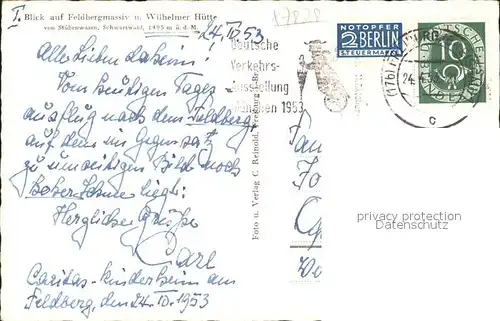 I. Blick auf Feldbergmassiv u. Wilhelmer Hütte
von Stübenwasen, Schwarzwald, 1495 m ü. d. M.
24. IV. 53
17878
Allerliebsten daheim!
Vom heutigen Tages
ausflug nach dem Feldberg,
auf dem im Gegensatz
zu umseitigem Bild noch
hoher Schnee liegt:
Herzliche Grüße
Carl
Caritas-Kinderheim am
Feldberg, den 24. IV. 1953
Foto u. Verlag C. Reinold, Freiburg i. Br.
Deutsche
Verkehrs-
Ausstellung
München 1953
NOTOPFER
2 BERLIN
STEUERMARKE
DEUTSCHE
10
(17b)
24.4.53
c
privacy protection
Datenschutz